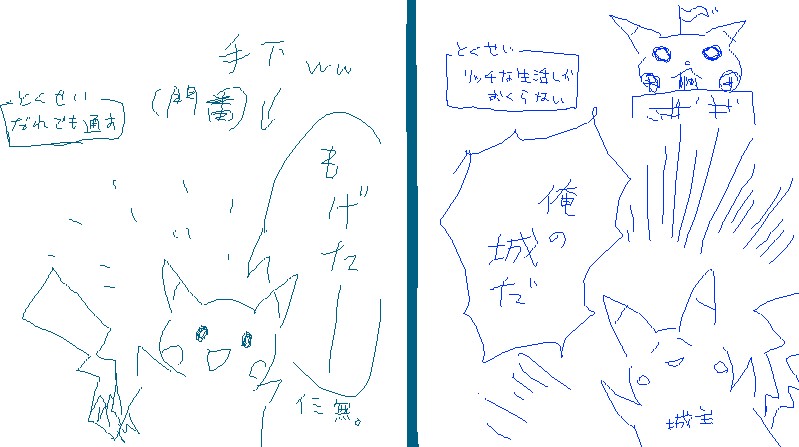 手下ww
(門番)
とくせい
だれでも通す
もげたー
イミ無。
とくせい
リッチな生活しか
おくらない
俺の
城だ
城主